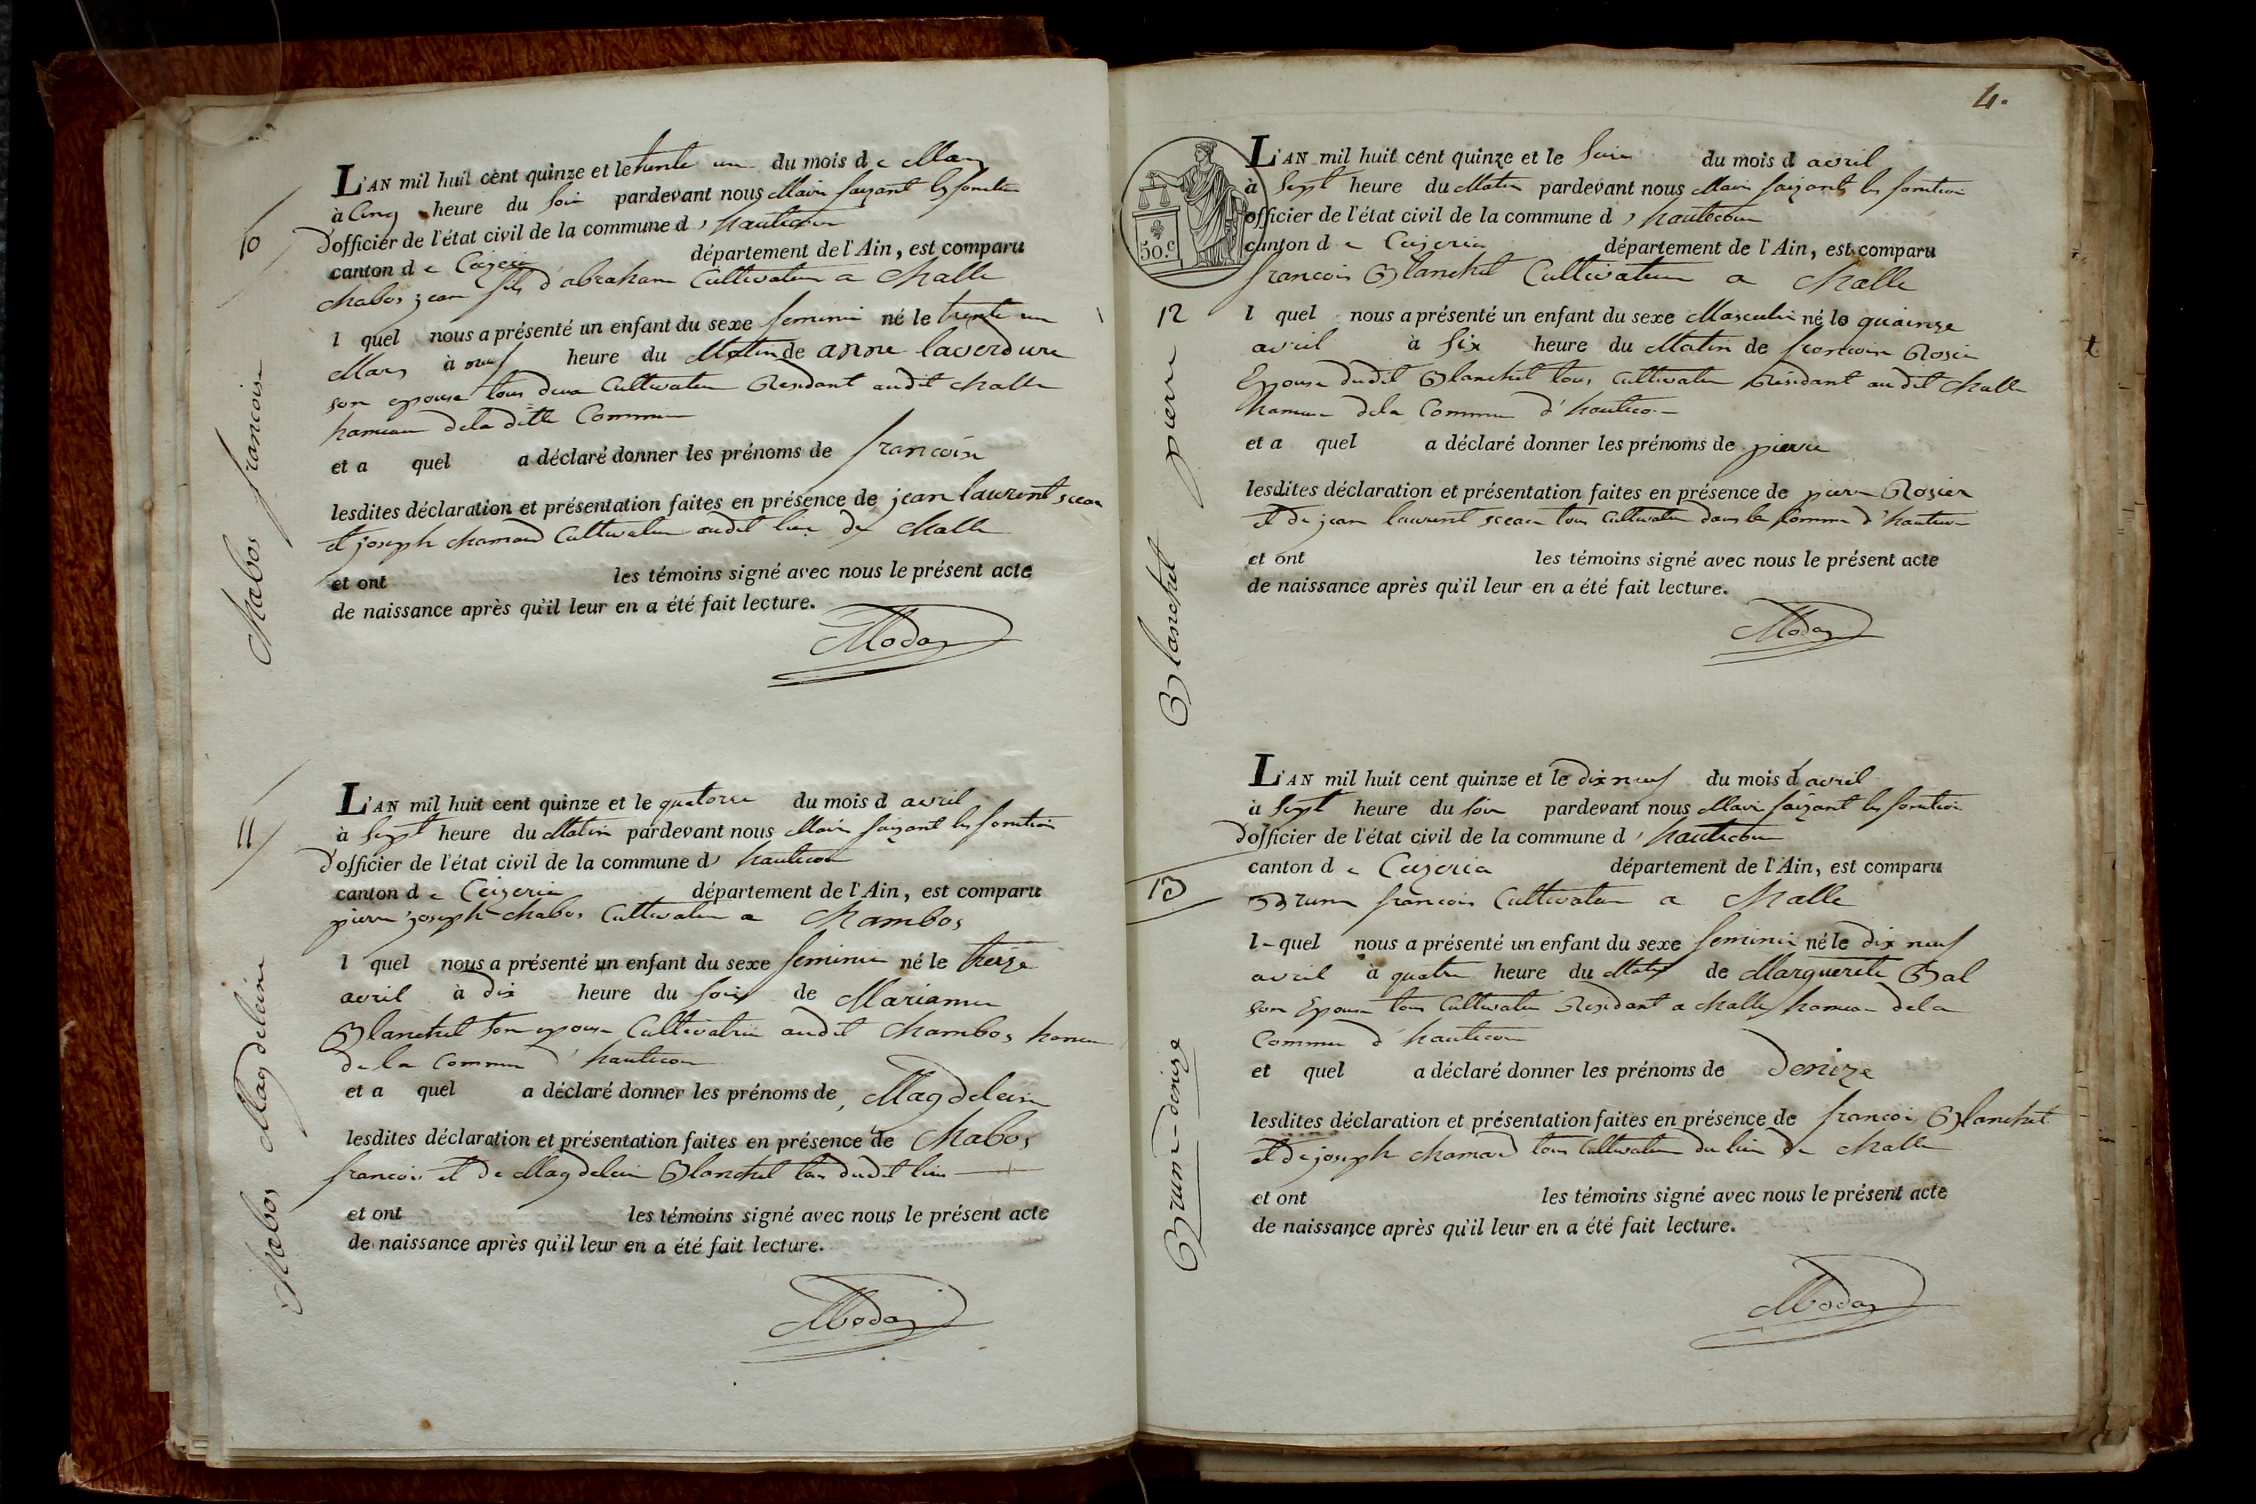 10
Chabos francoise
L'AN mil huit cent quinze et le trente un du mois de Mars
à Cinq heure du soir pardevant nous Maire faizant les fonction
d'officier de l'état civil de la commune d'hautecour
canton de département de l'Ain, est comparu
Chabos jean fils d'abraham Cultivateur a Challe
l quel nous a présenté un enfant du sexe feminin né le trente un
Mars à neuf heure du Matin de anne laverdure
son epouse tous deux Cultivateur Residant audit Challe
hameau dela ditte Commune
et a quel a déclaré donner les prénoms de francoise
lesdites déclaration et présentation faites en présence de jean laurent
et joseph chamard Cultivateur audit lieu de Challe
et ont les témoins signé avec nous le présent acte
de naissance après qu'il leur en a été fait lecture.
11
Chabos Magdeleine
L'AN mil huit cent quinze et le quatorze du mois d avril
à Sept heure du Matin pardevant nous Maire faizant les fonction
d'officier de l'état civil de la commune d' hautecour
canton de Ceizeria département de l'Ain, est comparu
pierre joseph Chabos Cultivateur a Chambos
l quel nous a présenté un enfant du sexe feminin né le treize
avril à dix heure du soir de Marianne
Blanchet son epouse Cultivatrice audit Chambos hameau
de la Commune d'hautecour
et a quel a déclaré donner les prénoms de Magdelein
lesdites déclaration et présentation faites en présence de Chabos
francois et de Magdelein Blanchet tous dudit lieu
et ont les témoins signé avec nous le présent acte
de naissance après qu'il leur en a été fait lecture.
4.
50.c
12
Blanchet pierre
L'AN mil huit cent quinze et le du mois d avril
à Sept heure du Matin pardevant nous Maire faizant les fonction
officier de l'état civil de la commune d'hautecour
canton de Ceizeria département de l'Ain, est comparu
francois Blanchet Cultivateur a Challe
l quel nous a présenté un enfant du sexe Masculin né le quainze
avril à Six heure du Matin de francoise Rosier
Epouse dudit Blanchet tous Cultivateur Residant audit Challe
hameau dela Commune d'hautecour
et a quel a déclaré donner les prénoms de pierre
lesdites déclaration et présentation faites en présence de pierre Rosier
et de jean laurent tous Cultivateur dans la Commune d'hautecour
et ont les témoins signé avec nous le présent acte
de naissance après qu'il leur en a été fait lecture.
13
Brune-denize
L'AN mil huit cent quinze et le dix neuf du mois d'avril
à Sept heure du soir pardevant nous Maire faizant les fonction
d'officier de l'état civil de la commune d'hautecour
canton de Ceizeria département de l'Ain, est comparu
Brune francois Cultivateur a Challe
l-quel nous a présenté un enfant du sexe feminin né le dix neuf
avril à quatre heure du Matin de Marguerite Bal
son Epouse tous Cultivateur Residant a Challe hameau dela
Commune d'hautecour
et quel a déclaré donner les prénoms de Denize
lesdites déclaration et présentation faites en présence de francois Blanchet
et de joseph chamard tous Cultivateur du lieu de Challe
et ont les témoins signé avec nous le présent acte
de naissance après qu'il leur en a été fait lecture.